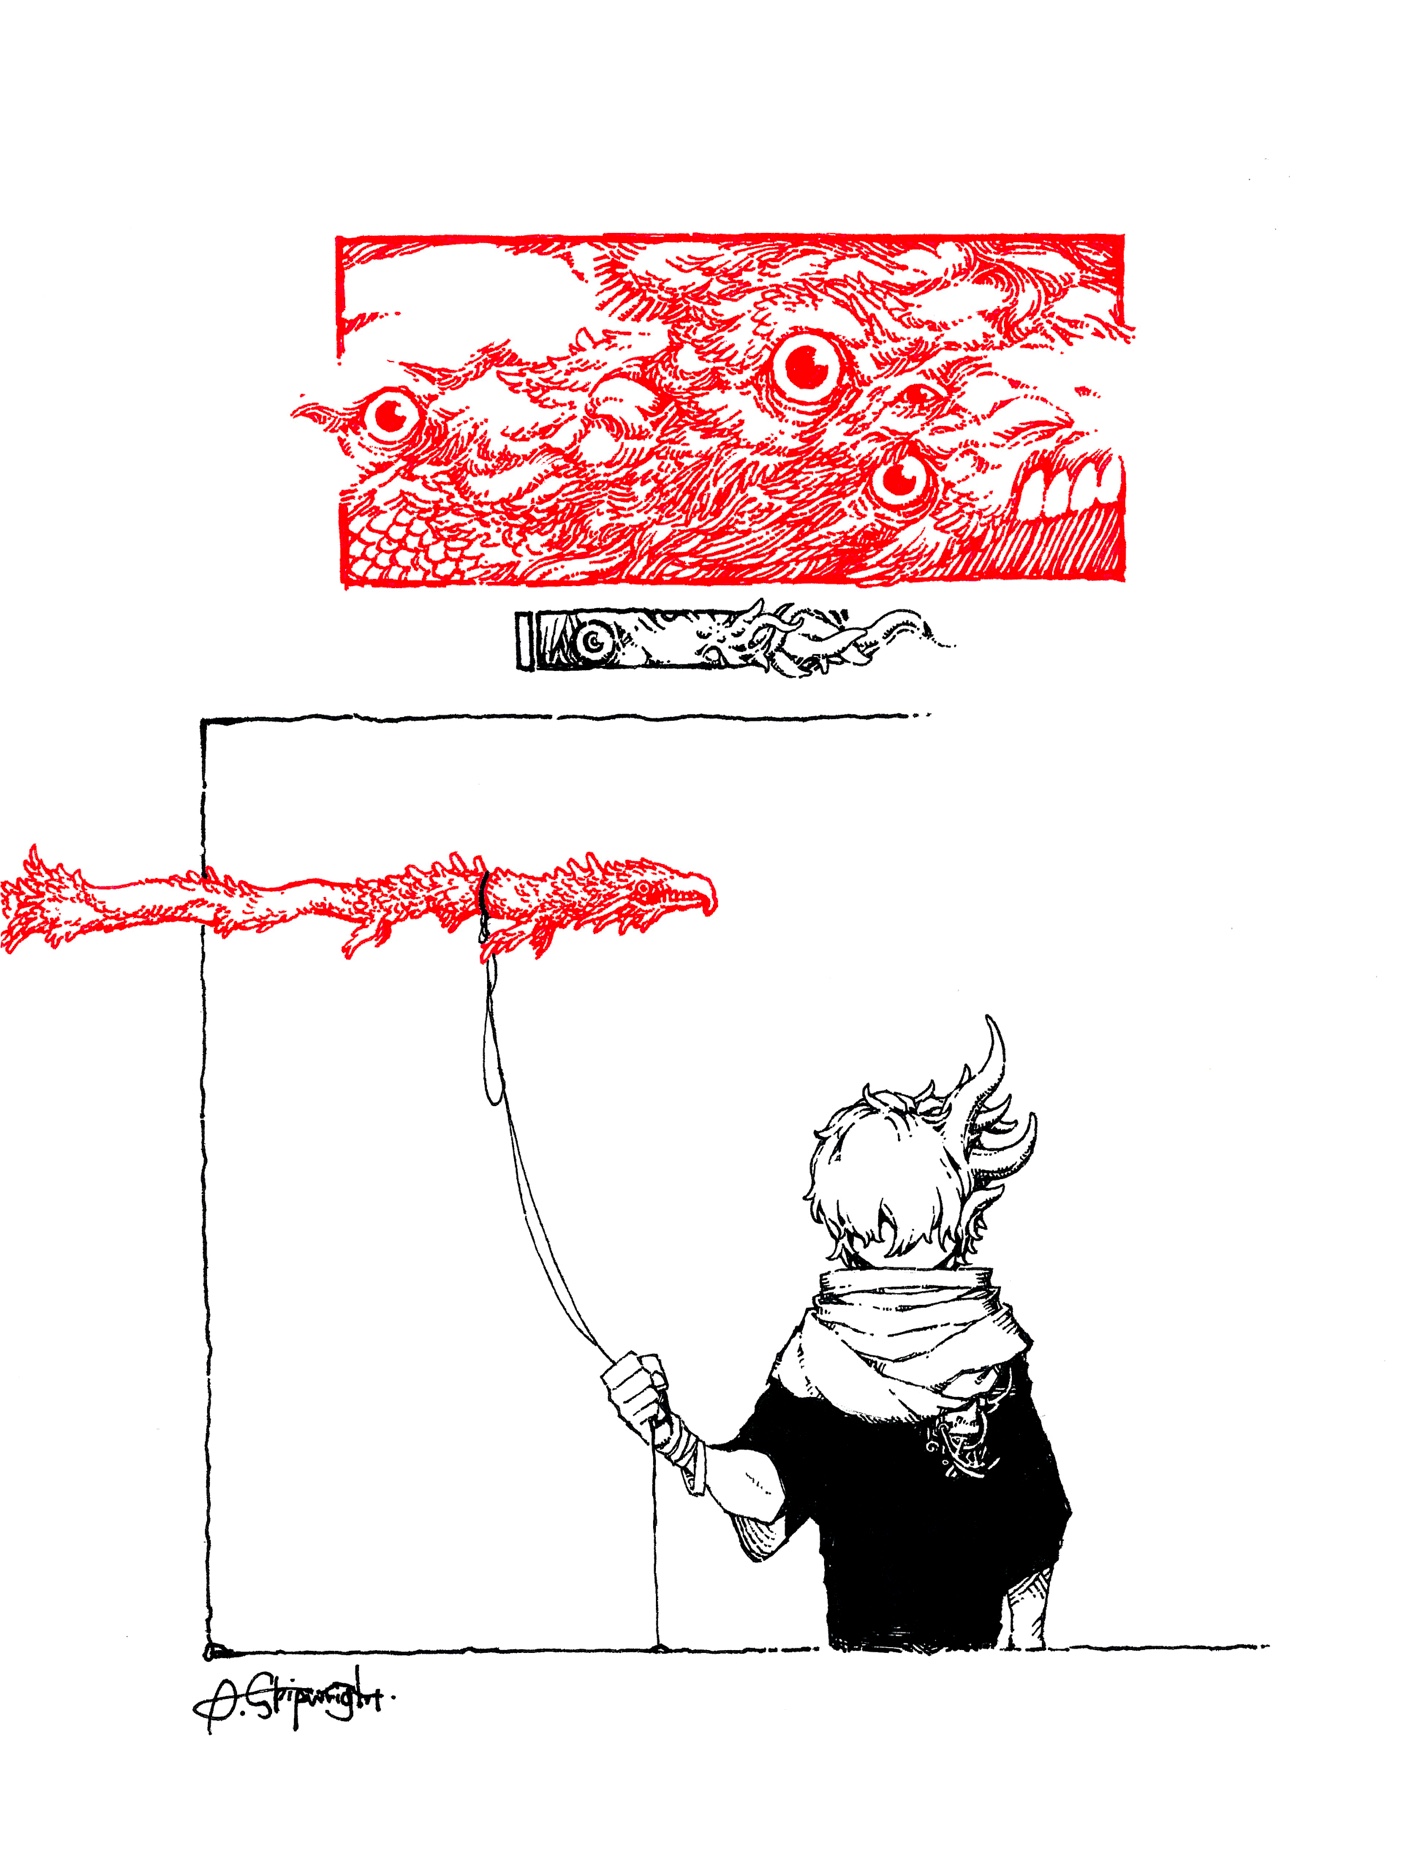 A. Shipwright.